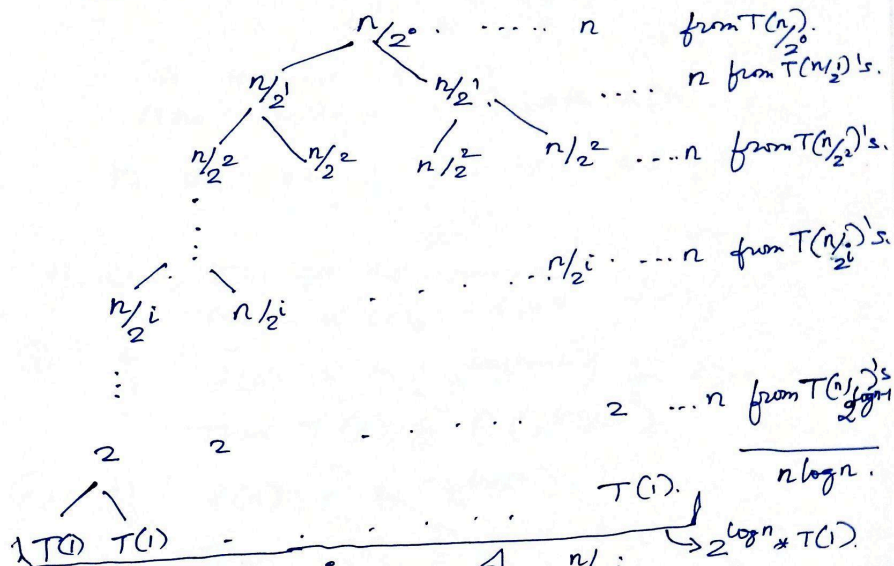 n/2⁰ . ..... n from T(n/2⁰).
n/2¹ n/2¹. .... n from T(n/2¹)'s.
n/2² n/2² n/2² n/2² ....n from T(n/2²)'s.
n/2ⁱ n/2ⁱ . . . . . n/2ⁱ ....n from T(n/2ⁱ)'s.
2 2 . . . . . 2 ...n from T(n/2^(logn-1))'s
n log n.
T(1) T(1) . . . . . T(1). → 2^(log n) * T(1).
n/